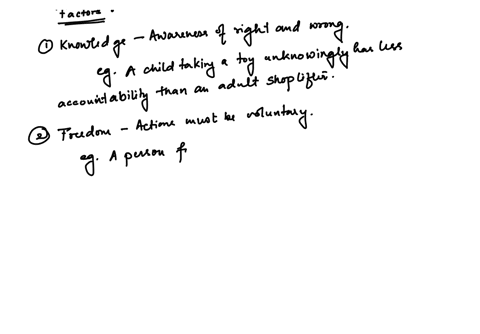 Factors .
① Knowledge – Awareness of right and wrong.
eg. A child taking a toy unknowingly has less
accountability than an adult shoplifter.
② Freedom – Actions must be voluntary.
eg. A person f